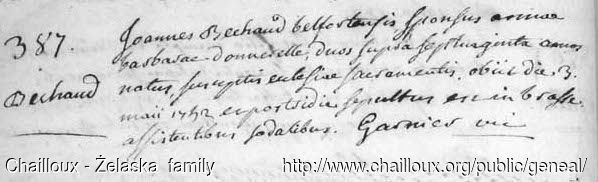 387.
Bechaud
Joannes Bechaud belfortensis sponsus annae
barbarae Donnerelle, duos supra septuaginta annos
natus, susceptis eclesiae sacramentis, obiit die 3.
maii 1752 et postridie sepultus est in brasse
assistentibus sodalibus. Garnier vic
Chailloux - Żelaska family
http://www.chailloux.org/public/geneal/